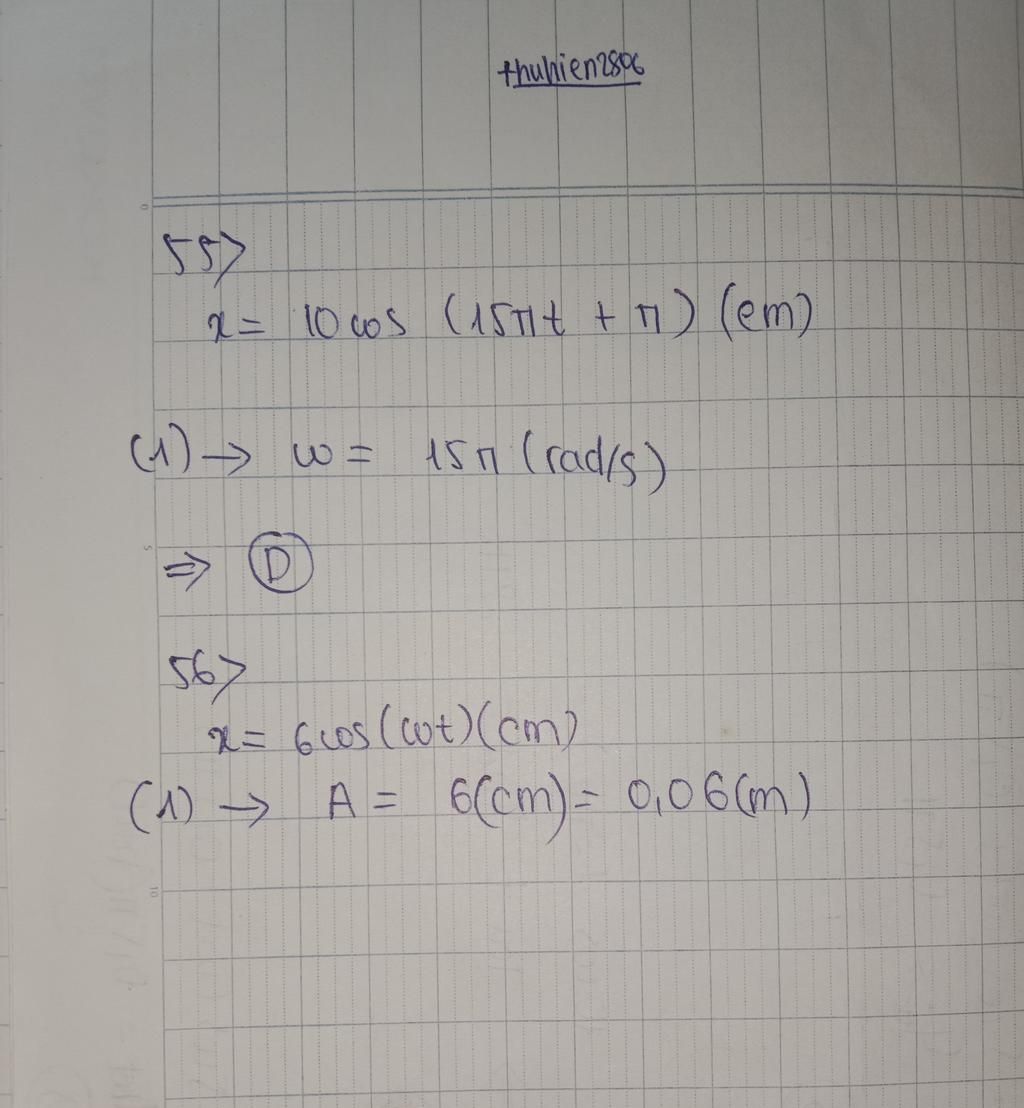 thuhien2806
55>
x = 10 cos (15πt + π) (cm)
(1) → ω = 15π (rad/s)
⇒ D
56>
x = 6cos(ωt)(cm)
(1) → A = 6(cm) = 0,06(m)